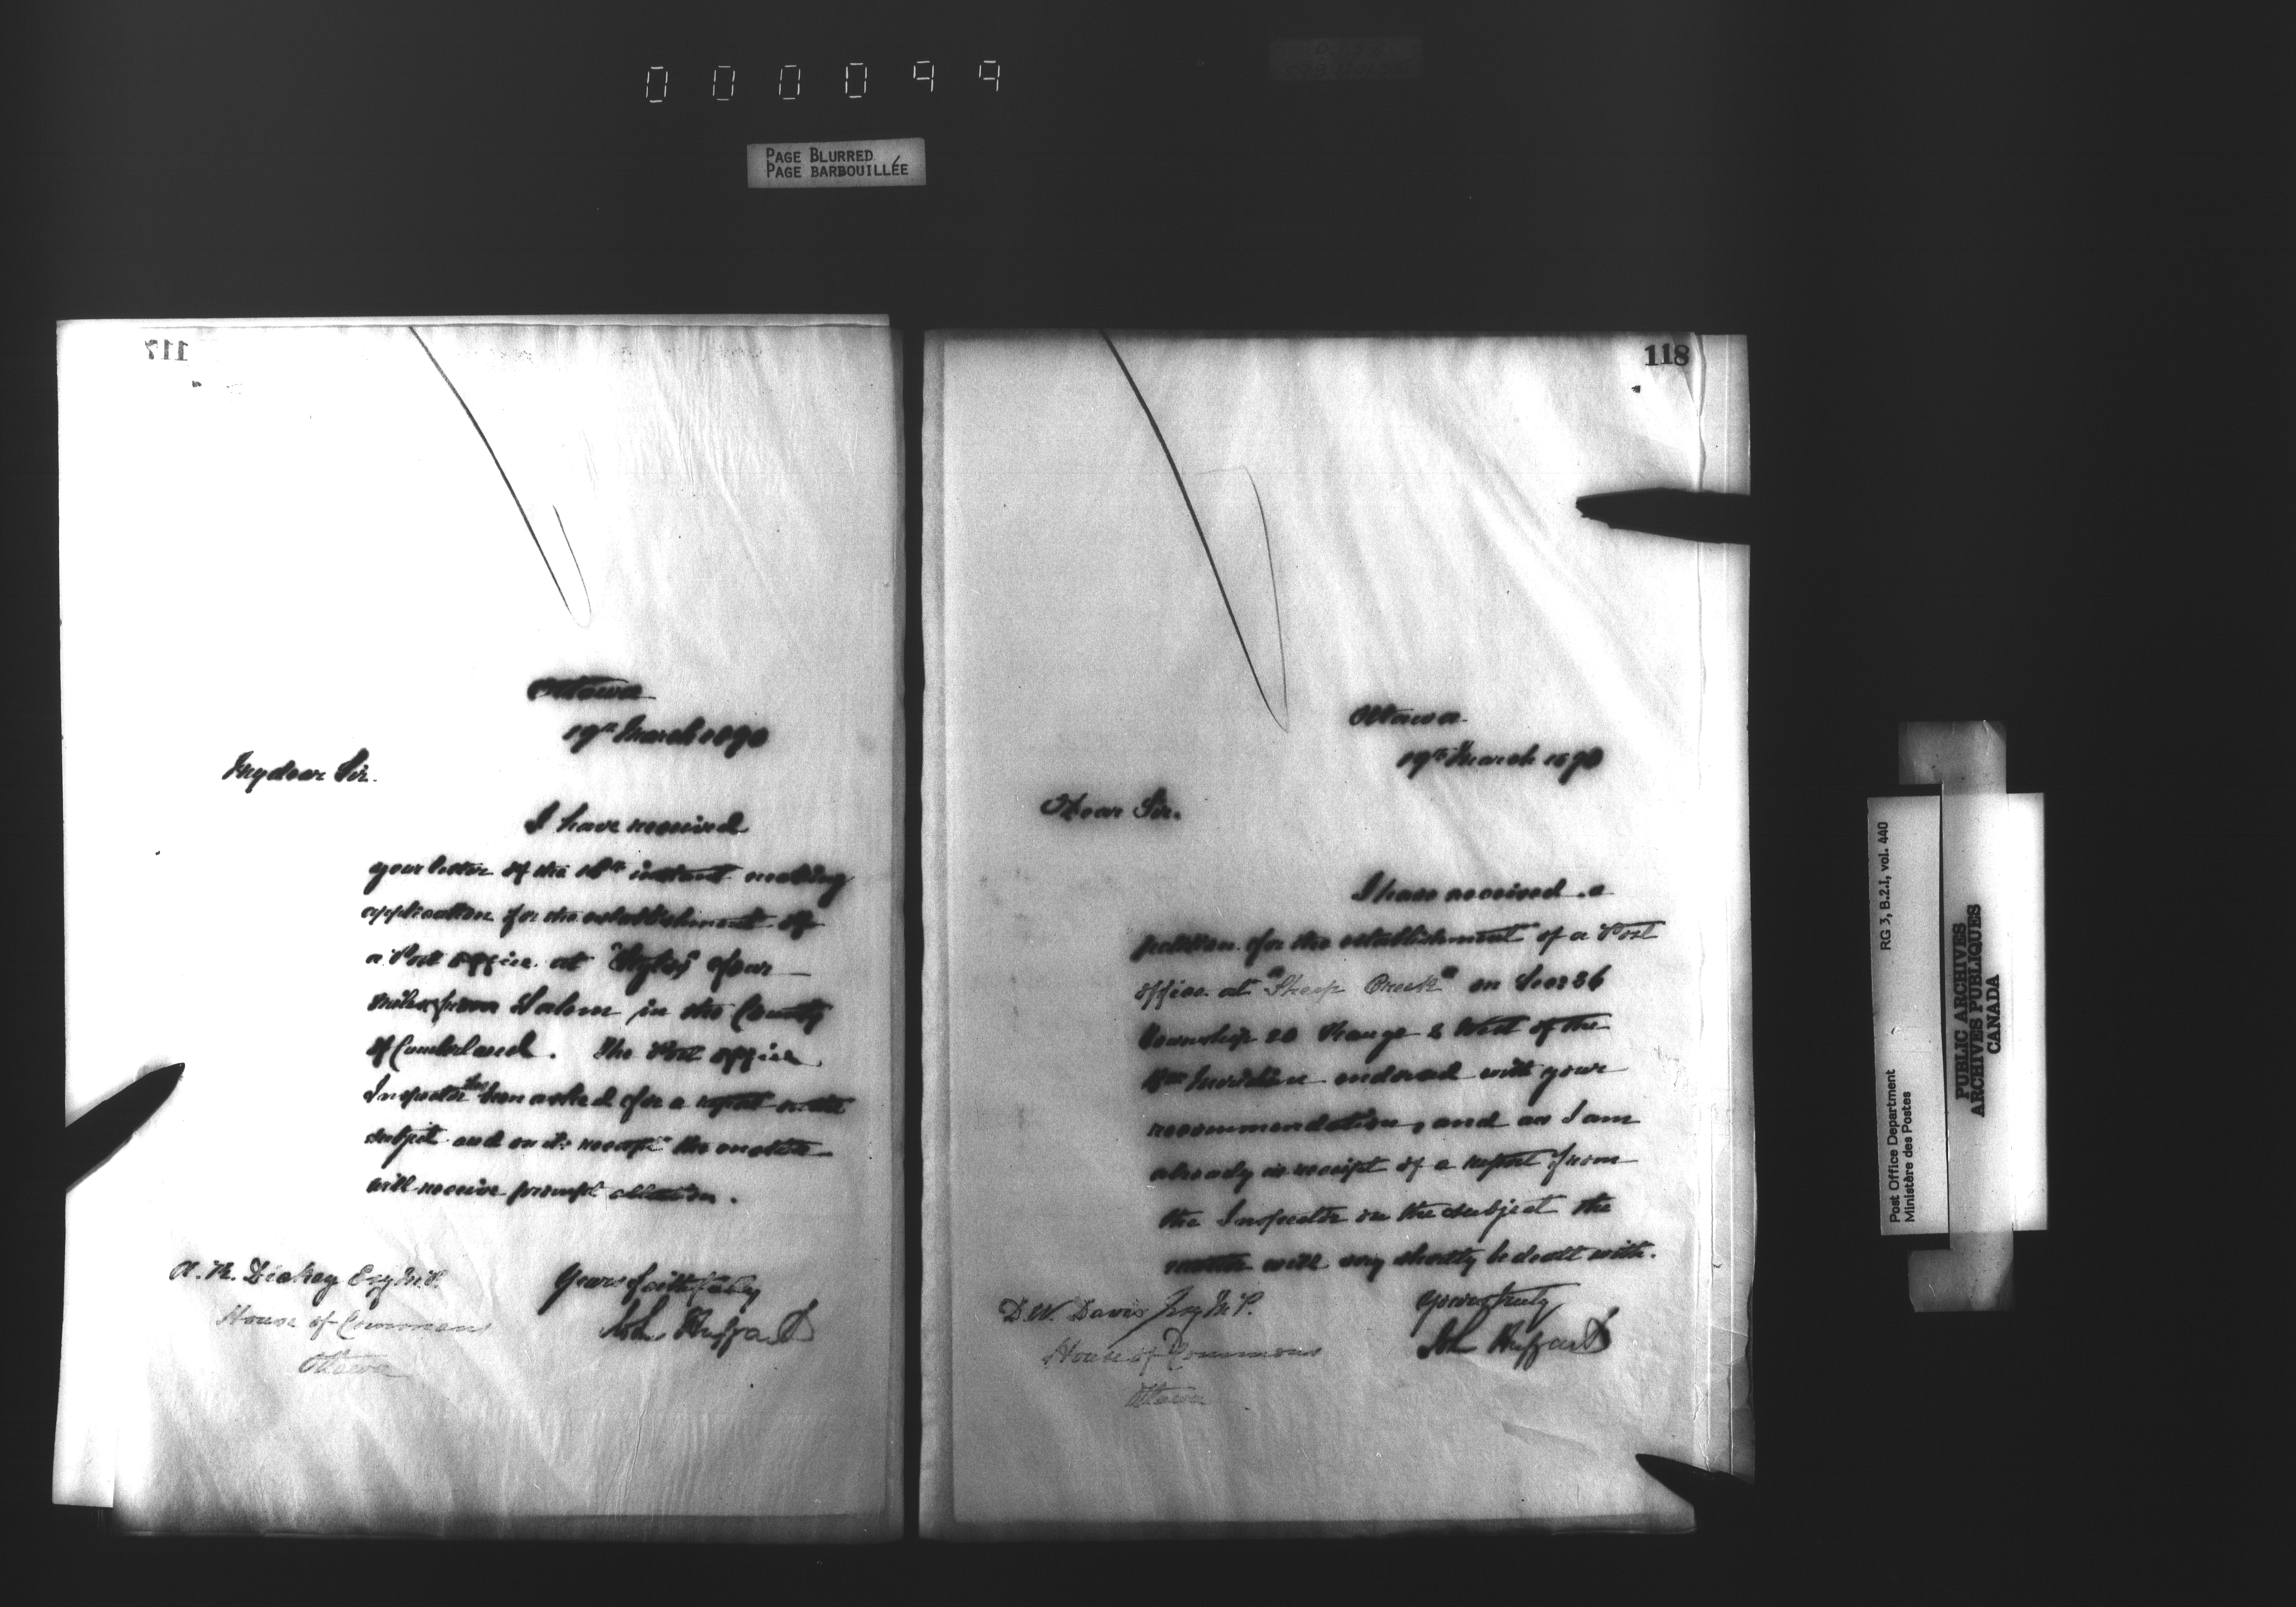 000099
PAGE BLURRED
PAGE BARBOUILLÉE
117
Ottawa
19th March 1890
My dear Sir.
I have received
your letter of the 18th instant making
application for the establishment of
a Post office at four
miles from Salem in the County
of Cumberland. The Post office
Inspector has been asked for a report on the
subject and on its receipt the matter
will receive prompt attention.
Yours faithfully
John Haggart
A. R. Dickey Esq M.P.
House of Commons
Ottawa
118
Ottawa
19th March 1890
Dear Sir.
I have received a
petition for the establishment of a Post
office at "Sheep Creek" on Sec 36
Township 20 Range 2 West of the
Meridian endorsed with your
recommendation, and as I am
already in receipt of a report from
the Inspector on the subject the
matter will very shortly be dealt with.
Yours truly
John Haggart
D. W. Davis Esq M.P.
House of Commons
Ottawa
Post Office Department
Ministère des Postes
RG 3, B.2.1, vol. 440
PUBLIC ARCHIVES
ARCHIVES PUBLIQUES
CANADA